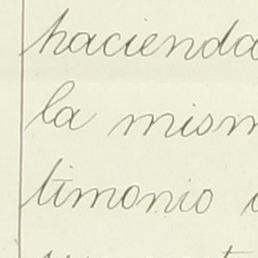 hacienda
la mism
timonio